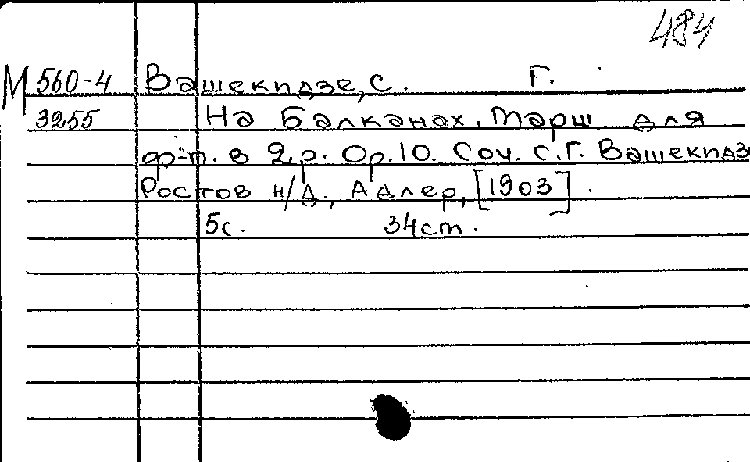 484
М 560-4 Вашекидзе, С. Г.
3255 На Балканах. Марш для
ф-п. в 2 р. Op. 10. Соч. С.Г. Вашекидз
Ростов н/Д., Адлер, [1903].
5с. 34cm.